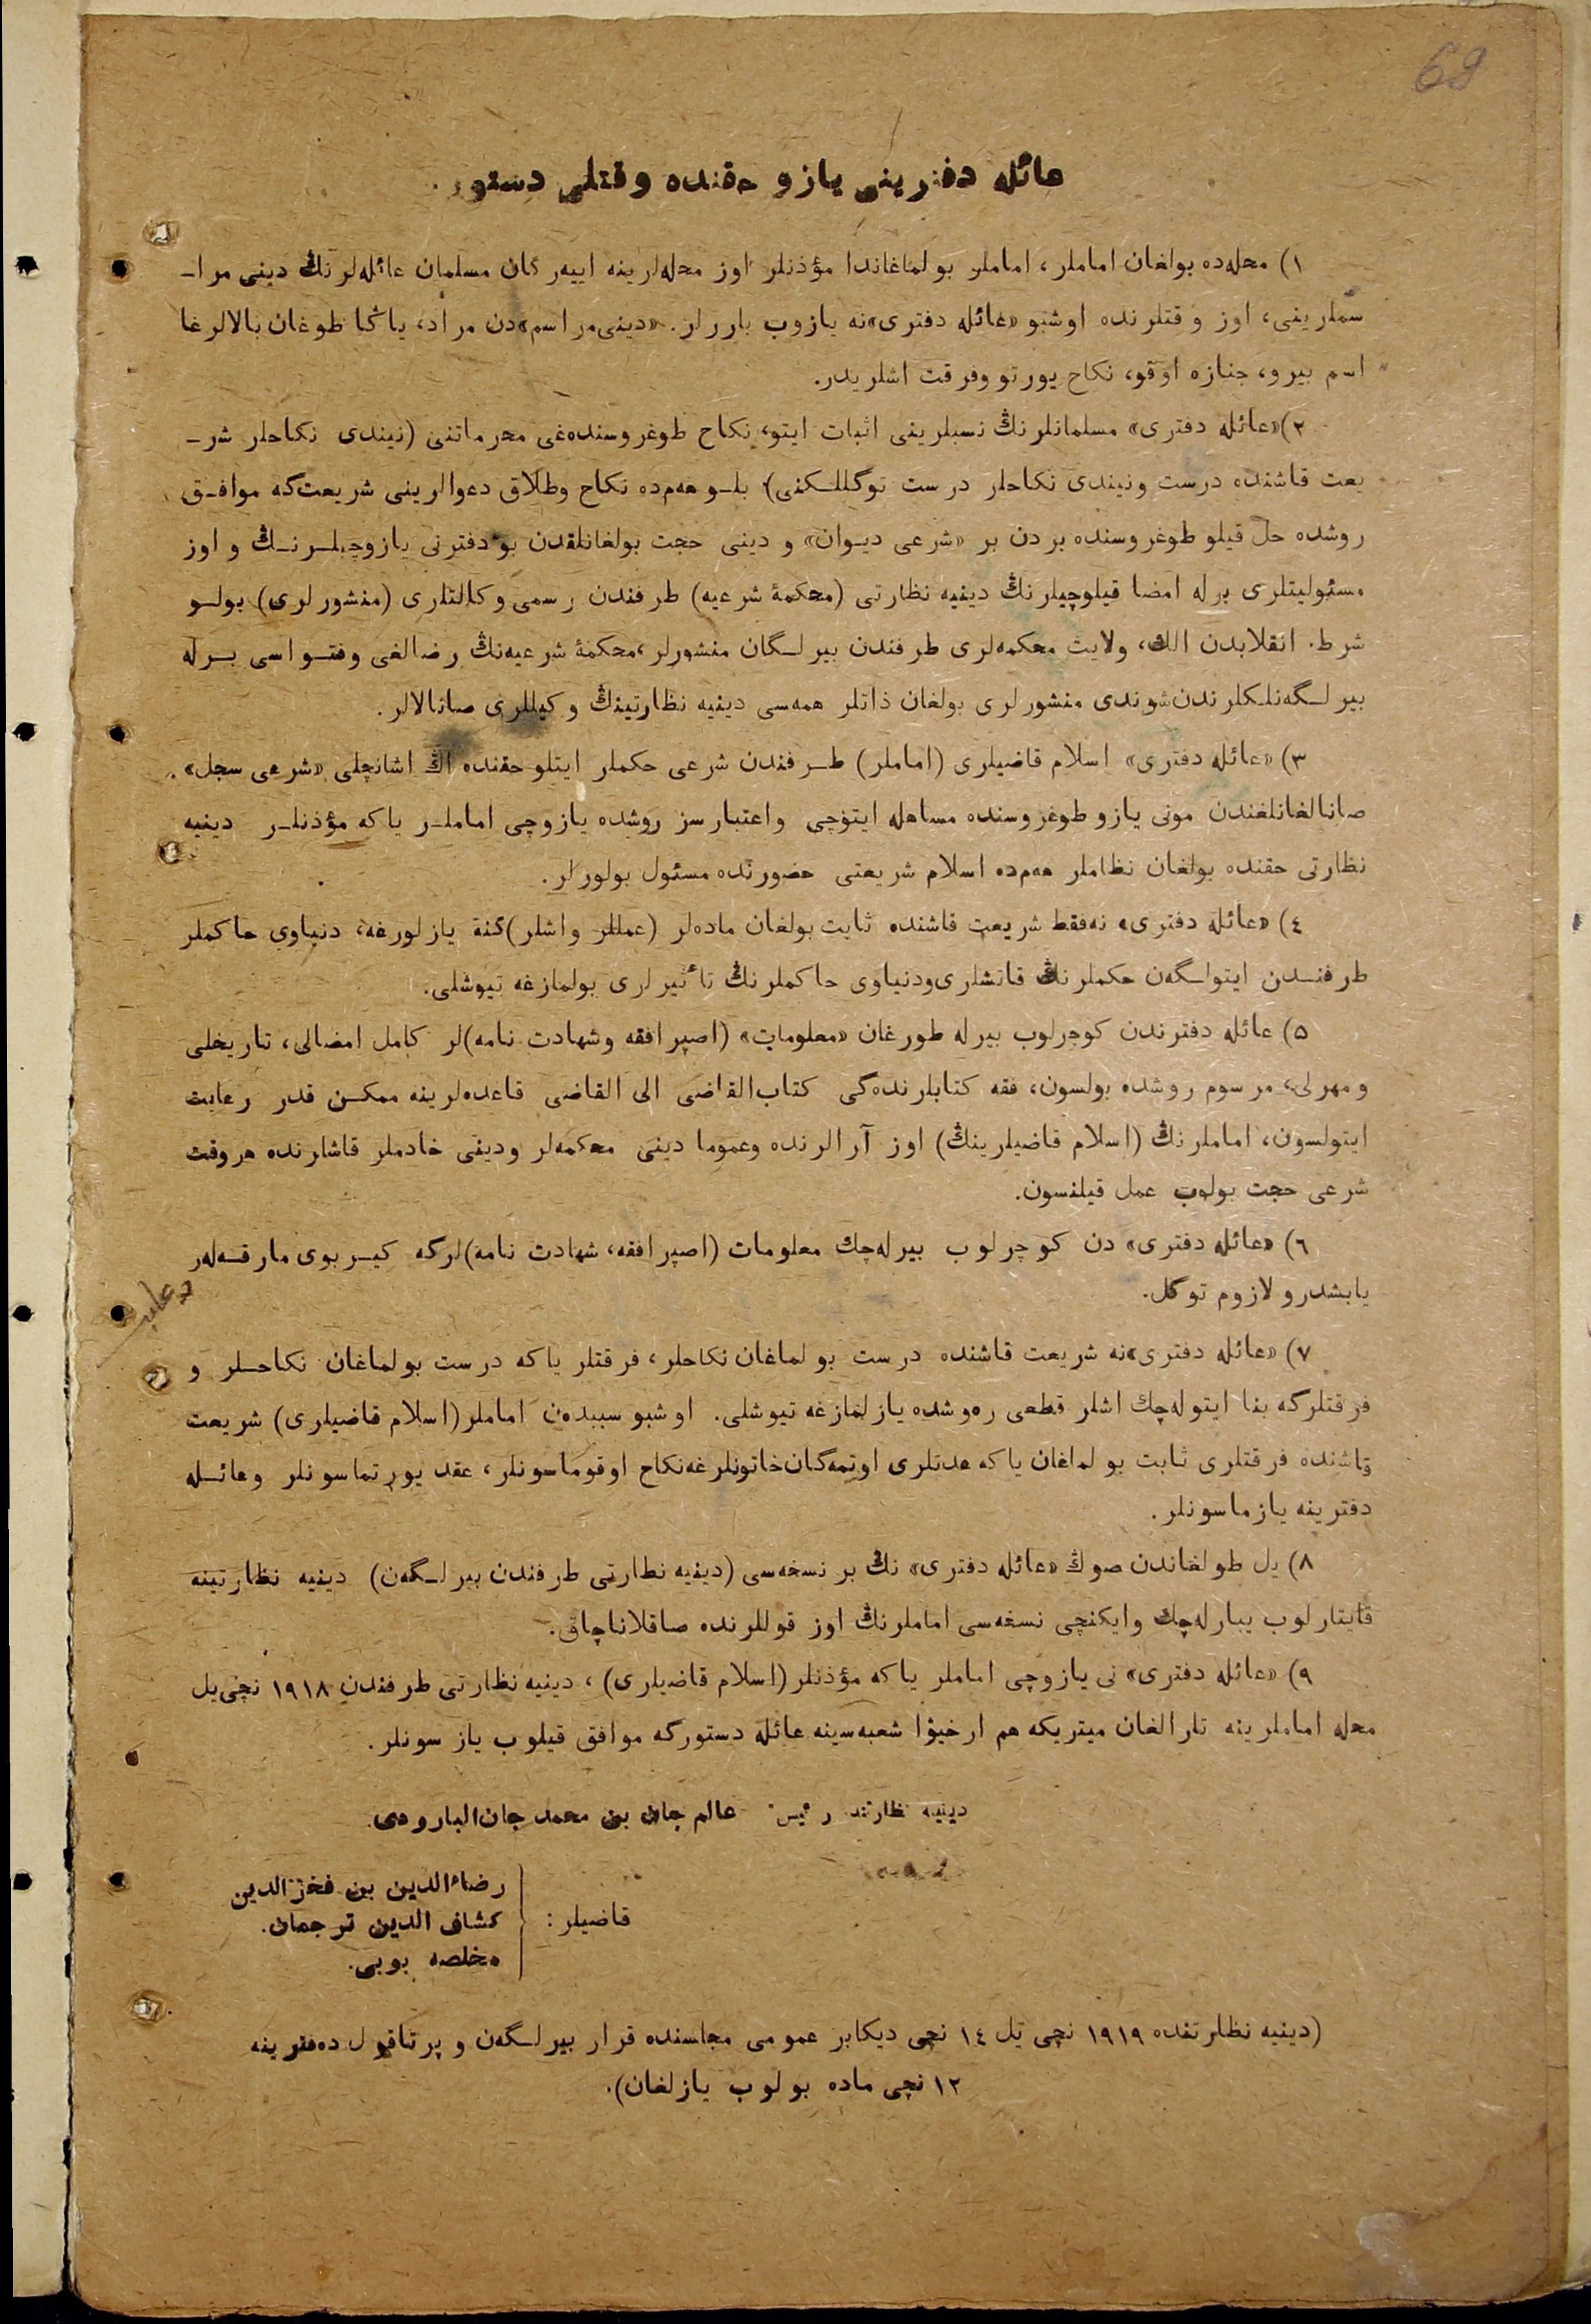 69
عائله دفترينى يازو حقنده وقتلى دستور.
١) محله‌ده بولغان اماملر، اماملر بولماغاندا مؤذنلر اوز محله‌لرينه اييه‌رگان مسلمان عائله‌لرنڭ دينى مرا‌ـ
سملرينى، اوز وقتلرنده اوشبو «عائله دفترى»نه يازوب باررلر. «دينى مراسم»دن مراد، ياڭا طوغان بالالرغا
اسم بيرو، جنازه اوقو، نكاح يورتو وفرقت اشلريدر.
٢) «عائله دفترى» مسلمانلرنڭ نسبلرينى اثبات ايتو، نكاح طوغروسنده‌غى محرماتنى (نيندى نكاحلر شر‌ـ
يعت قاشنده درست ونيندى نكاحلر درست توگللكنى) بلو هم‌ده نكاح وطلاق دعوالرينى شريعت‌كه موافق
روشده حل قيلو طوغروسنده بردن بر «شرعى ديوان» و دينى حجت بولغانلقدن بو دفترنى يازوچيلرنڭ و اوز
مسئوليتلرى برله امضا قيلوچيلرنڭ دينيه نظارتى (محكمۀ شرعيه) طرفندن رسمى وكالتلرى (منشورلرى) بولو
شرط. انقلابدن الك، ولايت محكمه‌لرى طرفندن بيرلگان منشورلر، محكمۀ شرعيه‌نڭ رضالغى وفتواسى برله
بيرلگه‌نلكلرندن شوندى منشورلرى بولغان ذاتلر همه‌سى دينيه نظارتينڭ وكيللرى صانالالر.
٣) «عائله دفترى» اسلام قاضيلرى (اماملر) طرفندن شرعى حكملر ايتلو حقنده اڭ اشانچلى «شرعى سجل».
صانالغانلغندن مونى يازو طوغروسنده مساهله ايتوچى واعتبارسز روشده يازوچى اماملر ياكه مؤذنلر دينيه
نظارتى حقنده بولغان نظاملر هم‌ده اسلام شريعتى حضورنده مسئول بولورلر.
٤) «عائله دفترى» نه‌فقط شريعت قاشنده ثابت بولغان ماده‌لر (عمللر واشلر)گنه يازلورغه، دنياوى حاكملر
طرفندن ايتولگه‌ن حكملرنڭ قاتشلرى ودنياوى حاكملرنڭ تأثيرلرى بولمازغه تيوشلى.
٥) عائله دفترندن كوچرلوب بيرله طورغان «معلومات» (اصپرافقه وشهادت نامه)لر كامل امضالى، تاريخلى
ومهرلى، مرسوم روشده بولسون، فقه كتابلرنده‌گى كتاب‌القاضى الى القاضى قاعده‌لرينه ممكن قدر رعايت
ايتولسون، اماملرنڭ (اسلام قاضيلرينڭ) اوز آرالرنده وعموما دينى محكمه‌لر ودينى خادملر قاشلرنده هروقت
شرعى حجت بولوب عمل قيلنسون.
٦) «عائله دفترى» دن كوچرلوب بيرله‌چك معلومات (اصپرافقه، شهادت نامه)لرگه كيربوى مارقه‌لر
يابشدرو لازوم توگل.
٧) «عائله دفترى»نه شريعت قاشنده درست بولماغان نكاحلر، فرقتلر ياكه درست بولماغان نكاحلر و
فرقتلرگه بنا ايتوله‌چك اشلر قطعى ره‌وشده يازلمازغه تيوشلى. اوشبو سببدەن اماملر (اسلام قاضيلرى) شريعت
قاشنده فرقتلرى ثابت بولماغان ياكه عدتلرى اوتمه‌گان خاتونلرغه نكاح اوقوماسونلر، عقد يورتماسونلر وعائله
دفترينه يازماسونلر.
٨) يل طولغاندن صوڭ «عائله دفترى» نڭ بر نسخه‌سى (دينيه نظارتى طرفندن بيرلگه‌ن) دينيه نظارتينه
قايتارلوب يبارله‌چك وايكنچى نسخه‌سى اماملرنڭ اوز قوللرنده صاقلاناچاق.
٩) «عائله دفترى» نى يازوچى اماملر ياكه مؤذنلر (اسلام قاضيلرى)، دينيه نظارتى طرفندن ١٩١٨ نچى يل
محله اماملرينه تارالغان ميتريكه هم ارخيوا شعبه‌سينه عائله دستورگه موافق قيلوب يازسونلر.
دينيه نظارتى رئيسى عالم جان بن محمد جان البارودى.
قاضيلر:
رضاءالدين بن فخرالدين
كشاف الدين ترجمان.
مخلصه بوبى.
(دينيه نظارتنده ١٩١٩ نچى يل ١٤ نچى ديكابر عمومى مجلسنده قرار بيرلگه‌ن و پرتاقول ده‌فترينه
١٢ نچى ماده بولوب يازلغان).